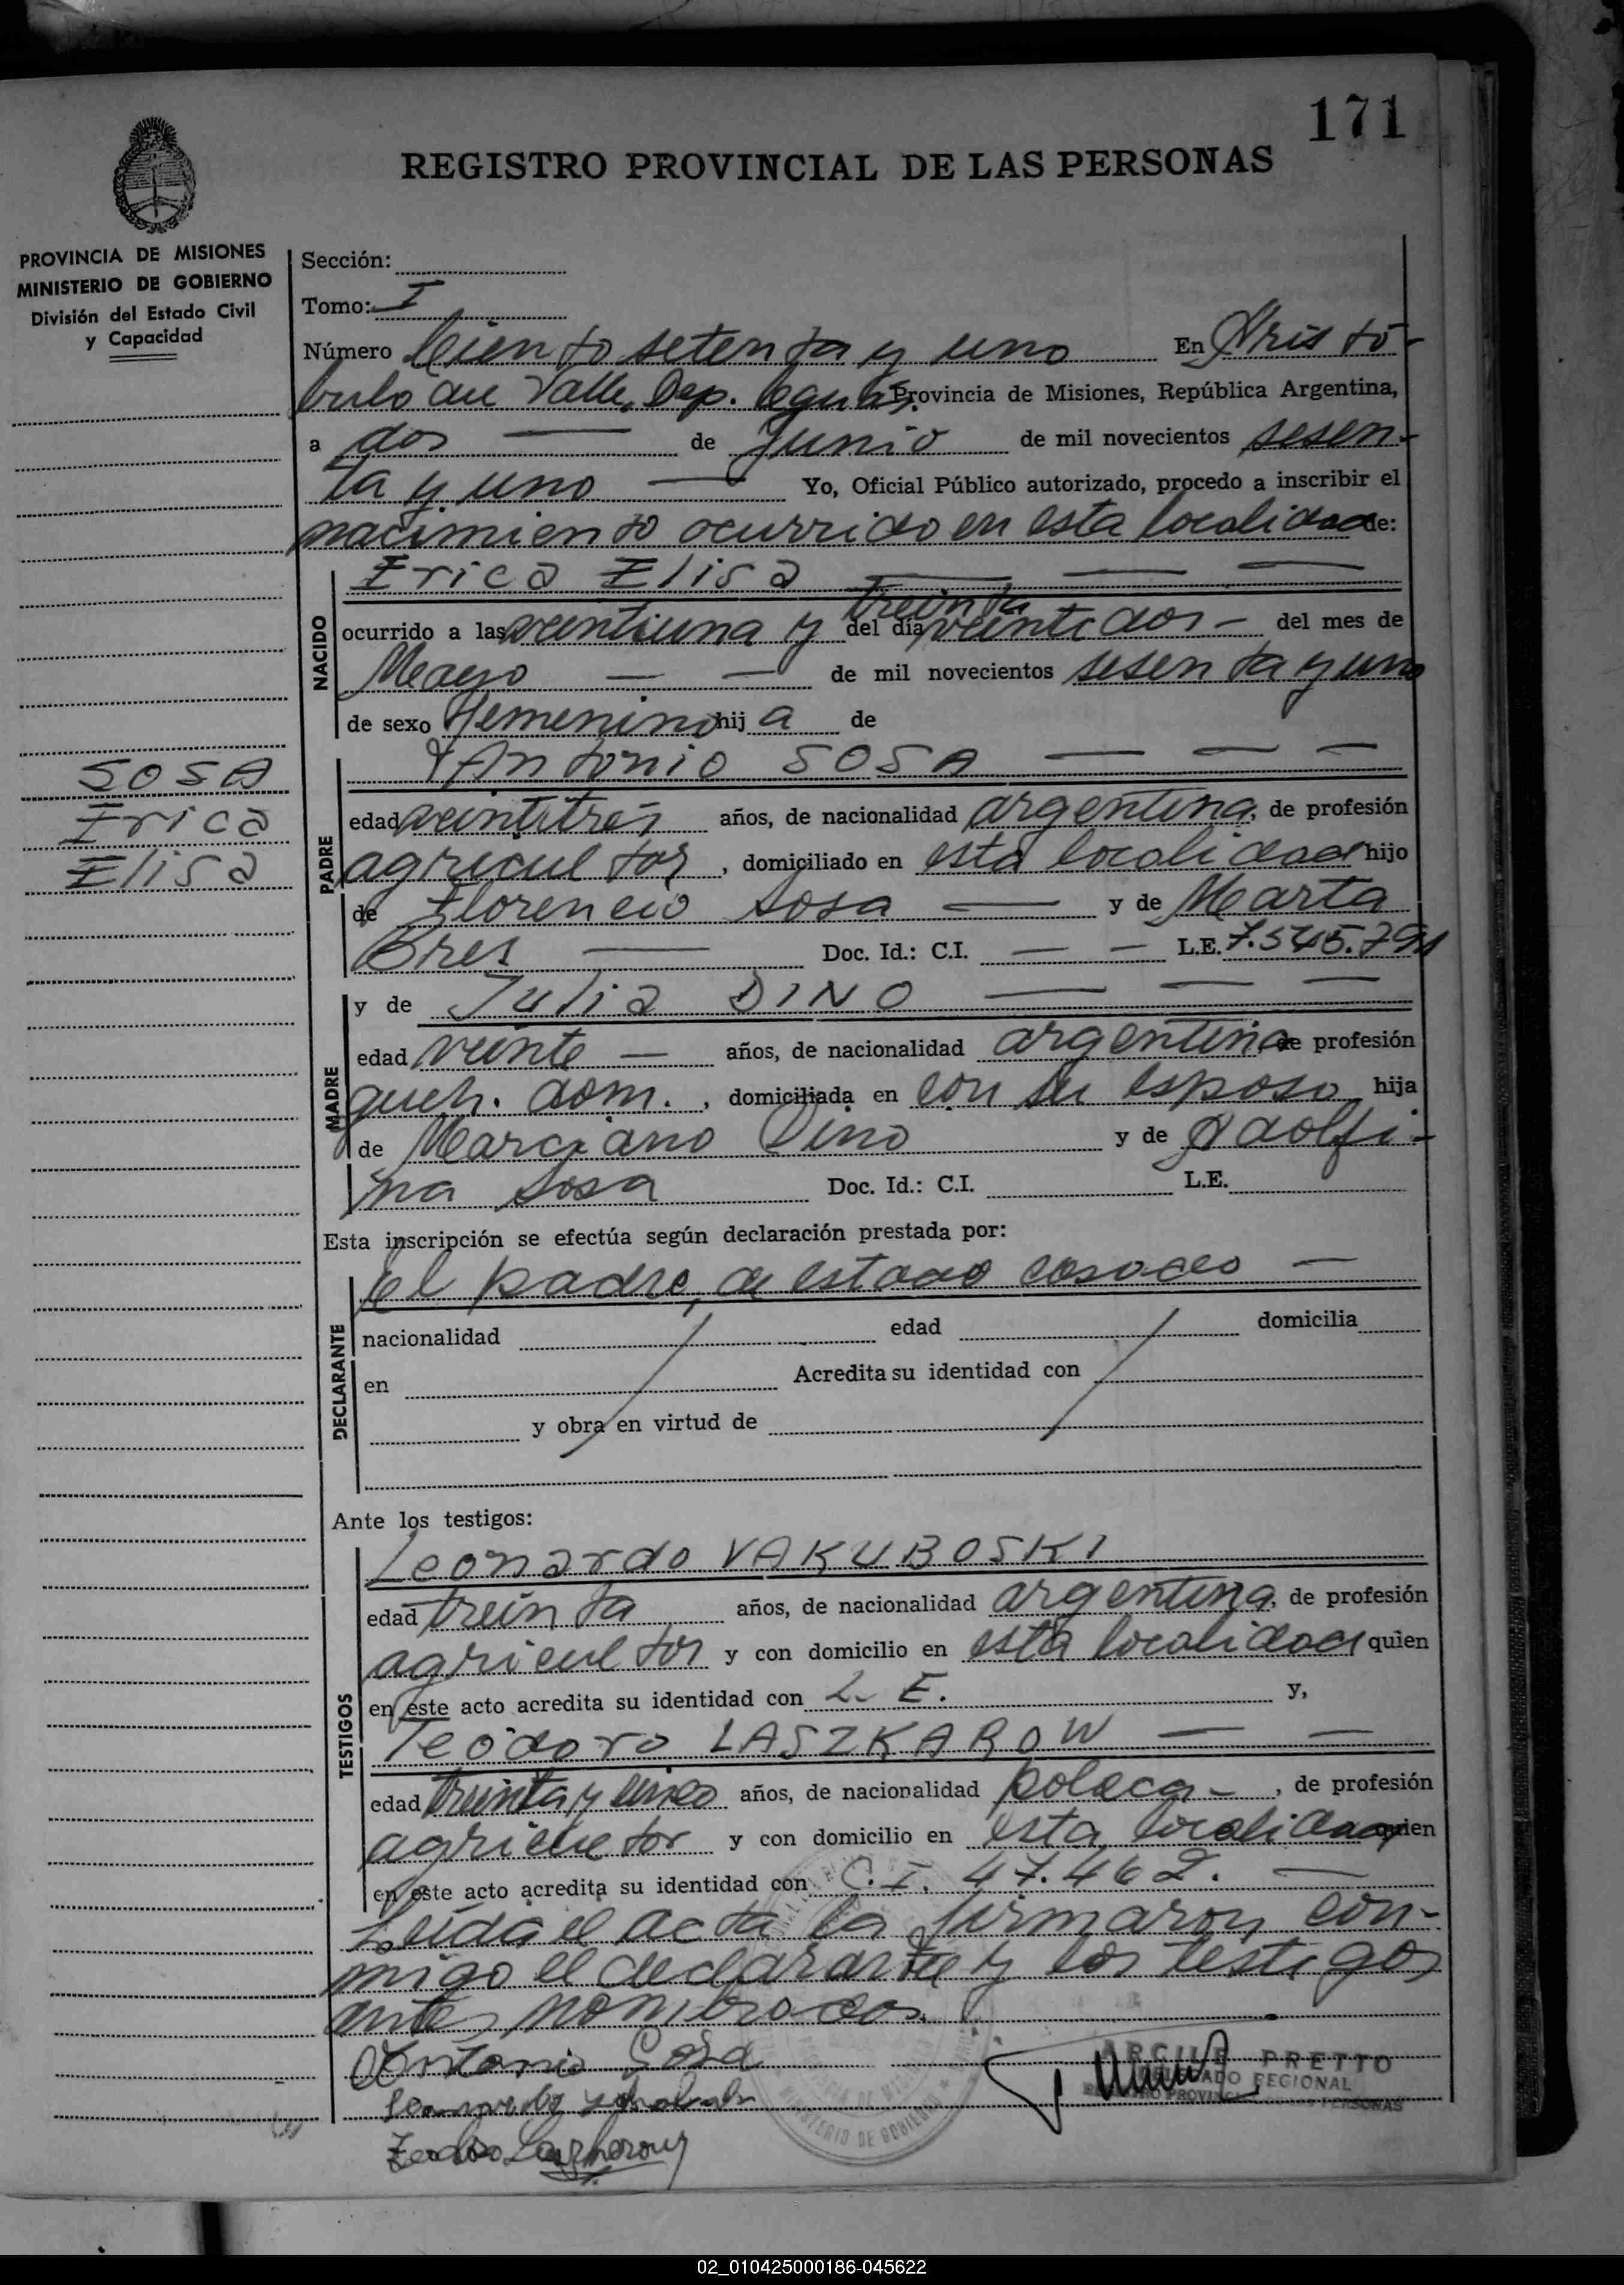 171
REGISTRO PROVINCIAL DE LAS PERSONAS
PROVINCIA DE MISIONES
MINISTERIO DE GOBIERNO
División del Estado Civil
y Capacidad
Sección:
Tomo: I
Número Ciento setenta y uno En Aristó-
bulo del Valle, Dep. Cguás. Provincia de Misiones, República Argentina,
a dos de Junio de mil novecientos sesen-
ta y uno Yo, Oficial Público autorizado, procedo a inscribir el
nacimiento ocurrido en esta localidad de:
NACIDO
Erica Elisa
treinta
ocurrido a las veintiuna y del día veintidos - del mes de
Mayo de mil novecientos sesenta y uno
de sexo Femenino hij a de
SOSA
Erica
Elisa
PADRE
Antonio SOSA
edad veintitrés años, de nacionalidad argentina, de profesión
agricultor, domiciliado en esta localidad hijo
de Florencio Sosa y de Marta
Bres Doc. Id.: C.I. L.E. 7.545.791
MADRE
y de Julia DINO
edad veinte años, de nacionalidad argentina de profesión
queh. dom., domiciliada en con su esposo hija
de Marciano Dino y de Adolfi-
na Sosa Doc. Id.: C.I. L.E.
Esta inscripción se efectúa según declaración prestada por:
DECLARANTE
el padre, de estado casado
nacionalidad edad domicilia
en Acredita su identidad con
y obra en virtud de
Ante los testigos:
TESTIGOS
Leonardo YAKUBOSKI
edad treinta años, de nacionalidad argentina, de profesión
agricultor y con domicilio en esta localidad quien
en este acto acredita su identidad con L. E. y,
Teodoro LASZKAROW
edad treinta y cinco años, de nacionalidad polaca, de profesión
agricultor y con domicilio en esta localidad quien
en este acto acredita su identidad con C.I. 47.462.
Leída el acta la firmaron con-
migo el declarante y los testigos
antes nombrados.
Antonio Sosa
ARCILE PRETTO
REGIONAL
MINISTERIO DE GOBIERNO
02_010425000186-045622